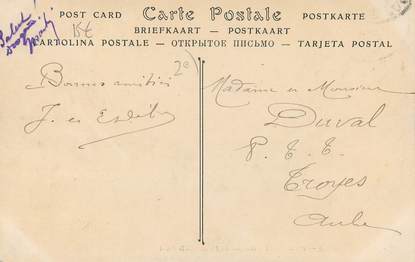 POST CARD Carte Postale POSTKARTE
BRIEFKAART — POSTKAART
CARTOLINA POSTALE — ОТКРЫТОЕ ПИСЬМО — TARJETA POSTAL
2e
Bonnes amitiés
J. et
Madame et Monsieur
Duval
P. T. T.
Troyes
Aube